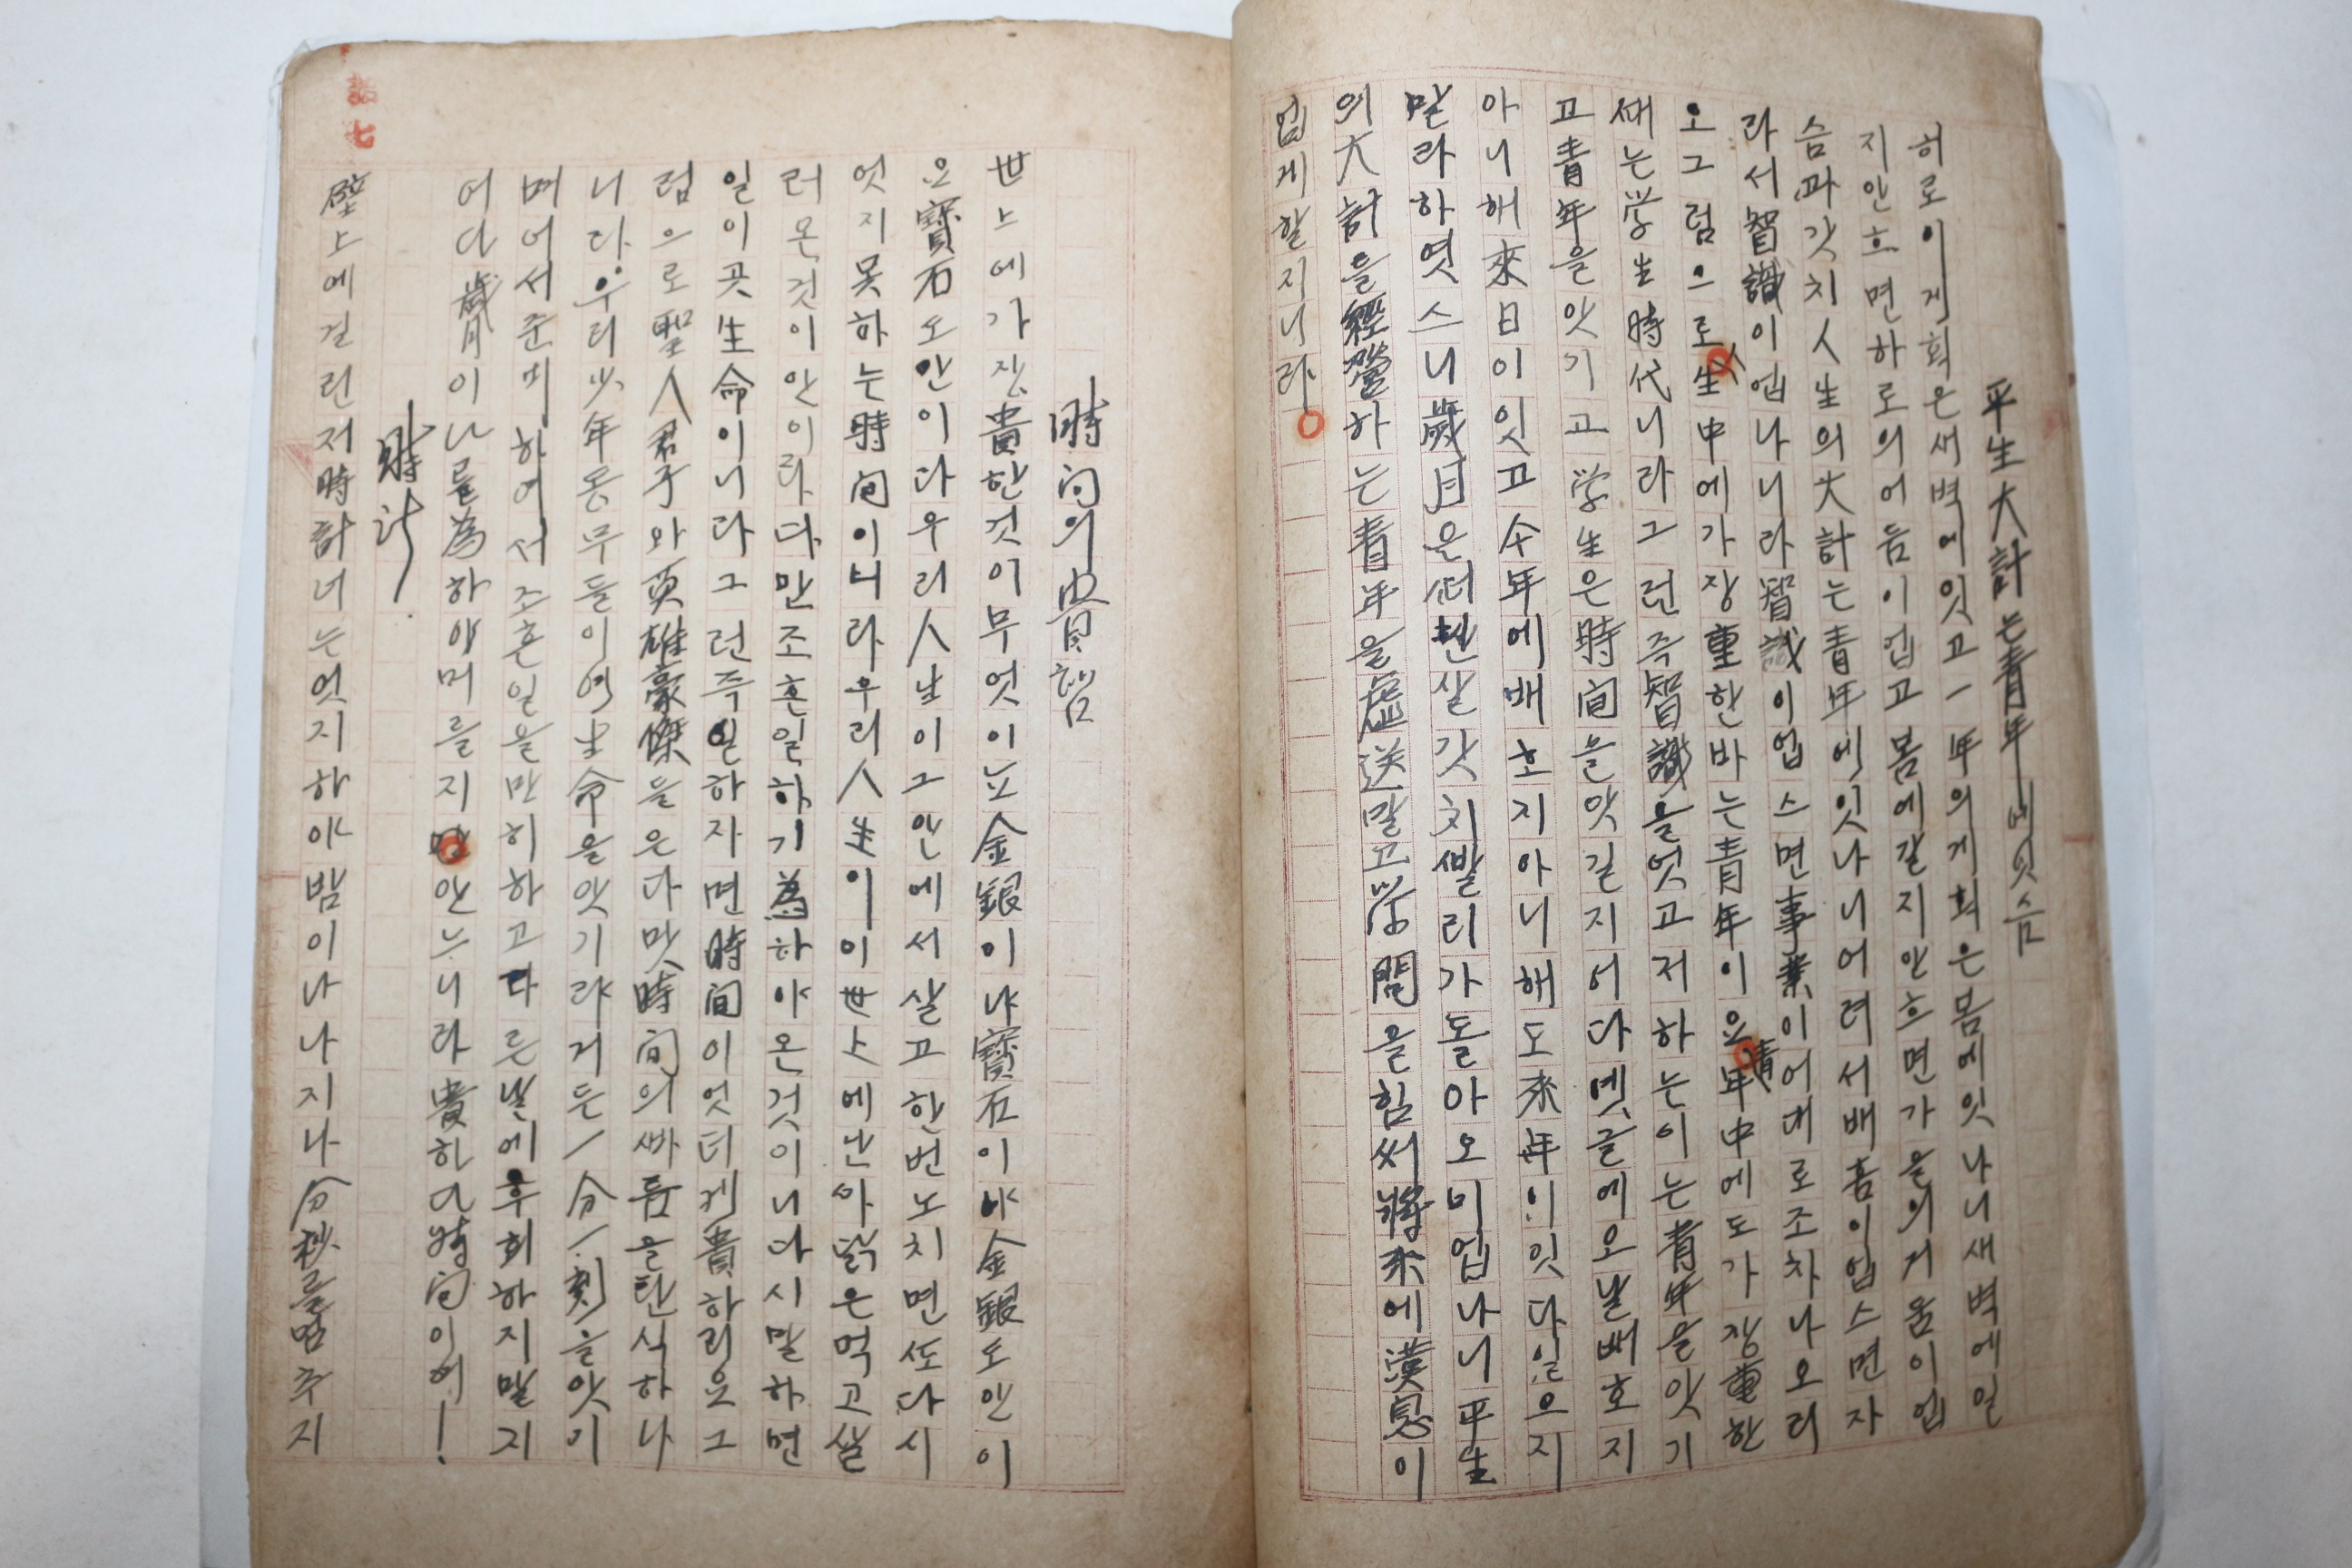 平生大計는靑年에잇슴
하로이게획은새벽에잇고一年의게획은봄에잇나니새벽에일
지안흐면하로의어둠이업고봄에갈지안흐면가을의거움이업
슴과갓치人生의大計는靑年에잇나니어려서배홈이업스면자
라서智識이업나니라智識이업스면事業이어대로조차나오리
오그럼으로人生中에가장重한바는靑年이요靑年中에도가장重한
때는学生時代니라그런즉智識을엇고저하는이는靑年을앗기
고靑年을앗기고学生은時間을앗길지어다옛글에오날배호지
아니해來日이잇고今年에배호지아니해도來年이잇다일으지
말라하엿스니歲月은 살갓치빨리가돌아오미업나니平生
의大計를經營하는靑年을虛送말고学問을힘써將來에漢息이
업게할지니라
時间의貴함
世上에가장貴한것이무엇이뇨金銀이냐寶石이냐金銀도안이
요寶石도안이다우리人날이그안에서살고한번노치면또다시
엇지못하는時间이니라우리人生이이世上에난바닭은먹고살
러온것이안이라다만조흔일하기為하야온것이니다시말하면
일이곳生命이니라그런즉일하자면時间이엇더케貴하리요그
럼으로聖人君子와英雄豪傑은다맛時间의빠름을탄식하나
니라우리少年동무들이여生命을앗기랴거든一分一刻을앗기
며어서준비하여서조흔일을만히하고다른날에후회하지말지
어다歲月이나를為하야머믈지안느니라貴하다時间이여!
時計
壁上에걸린저時計너는엇지하야밤이나나지나分秒를멈추지